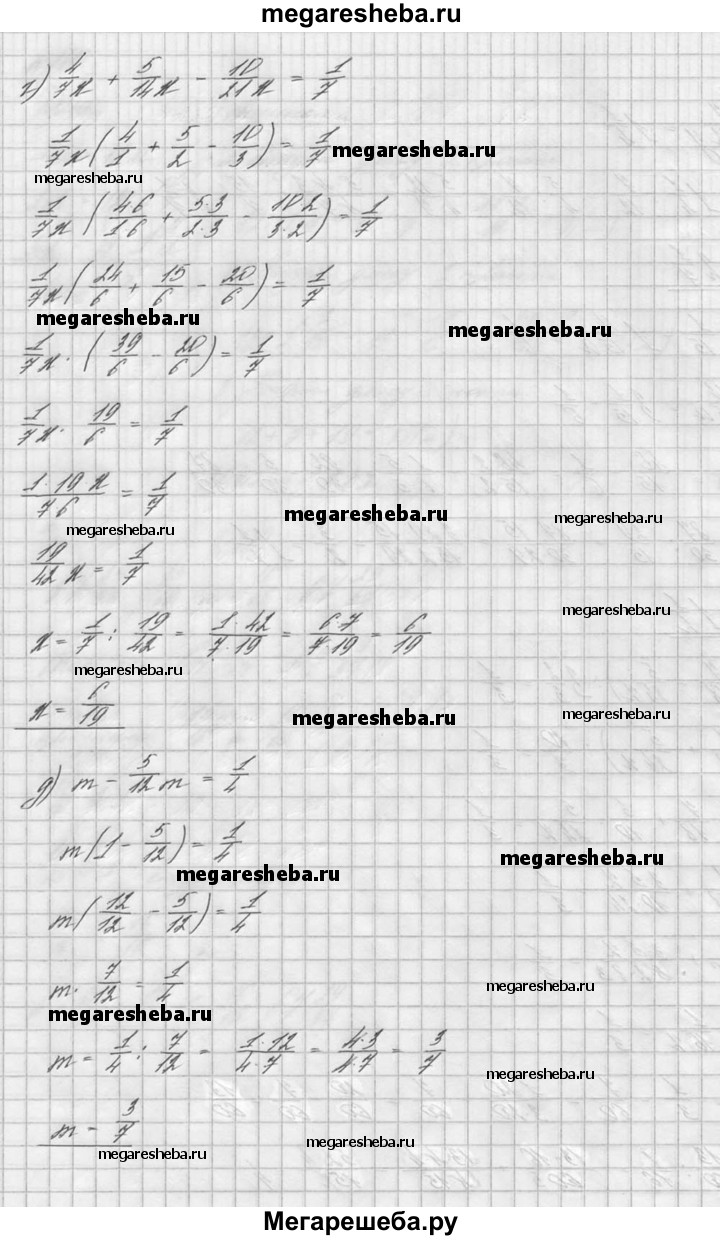 megaresheba.ru
г) 4/7 x + 5/14 x - 10/21 x = 1/7
1/7 x (4/1 + 5/2 - 10/3) = 1/7
megaresheba.ru
megaresheba.ru
1/7 x (4·6/1·6 + 5·3/2·3 - 10·2/3·2) = 1/7
1/7 x (24/6 + 15/6 - 20/6) = 1/7
megaresheba.ru
megaresheba.ru
1/7 x · (39/6 - 20/6) = 1/7
1/7 x · 19/6 = 1/7
1·19 x/7·6 = 1/7
megaresheba.ru
megaresheba.ru
megaresheba.ru
19/42 x = 1/7
megaresheba.ru
x = 1/7 : 19/42 = 1·42/7·19 = 6·7/7·19 = 6/19
megaresheba.ru
x = 6/19
megaresheba.ru
megaresheba.ru
д) m - 5/12 m = 1/4
m (1 - 5/12) = 1/4
megaresheba.ru
megaresheba.ru
m (12/12 - 5/12) = 1/4
m · 7/12 = 1/4
megaresheba.ru
megaresheba.ru
m = 1/4 : 7/12 = 1·12/4·7 = 4·3/4·7 = 3/7
megaresheba.ru
m = 3/7
megaresheba.ru
megaresheba.ru
Мегарешеба.ру